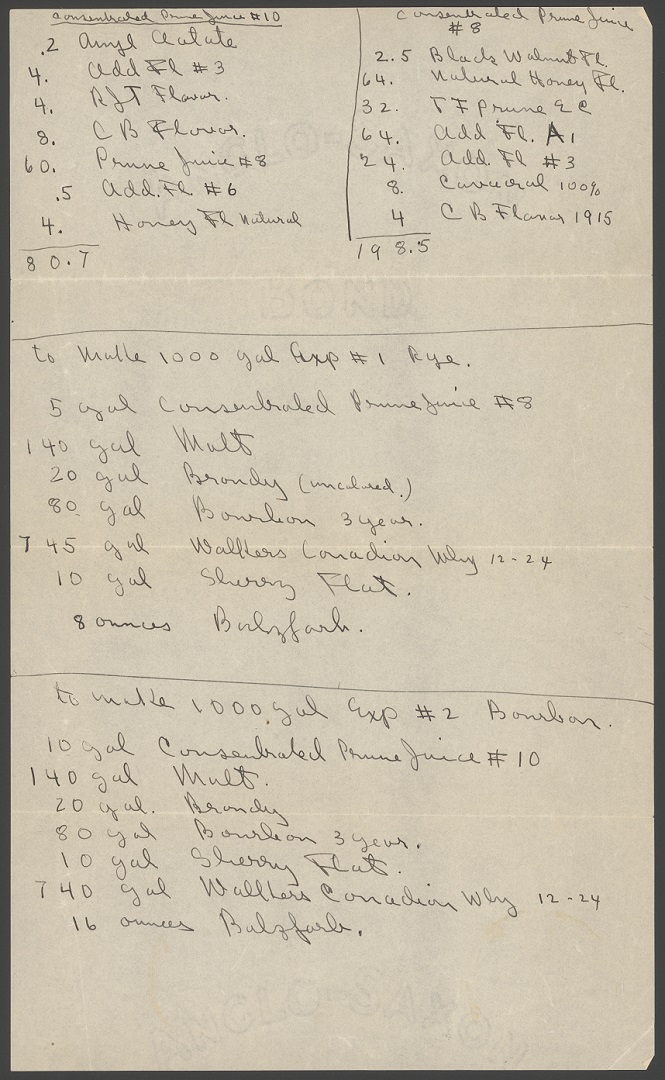 Consentrated Prune Juice #10
.2 Amyl Acitate
4. Add Fl #3
4. RJT Flavor.
8. CB Flavor.
60. Prune Juice #8
.5 Add. Fl. #6
4. Honey Fl Natural
80.7
Consentrated Prune Juice
#8
2.5 Black Walnut Fl.
64. Natural Honey Fl.
32. TF Prune EC
64. Add Fl. A1
24. Add. Fl #3
8. 100%
4 CB Flavor 1915
198.5
to Make 1000 gal Exp #1 Rye.
5 gal Consentrated Prune Juice #8
140 gal Malt
20 gal Brandy (uncolored.)
80 gal Bourbon 3 year.
745 gal Walkers Canadian Why 12-24
10 gal Sherry Flat.
8 ounces Balzfarb.
to make 1000 gal Exp #2 Bourbon.
10 gal Consentrated Prune Juice #10
140 gal Malt.
20 gal. Brandy
80 gal Bourbon 3 year.
10 gal Sherry Flat.
740 gal Walkers Canadian Why 12-24
16 ounces Balzfarb.